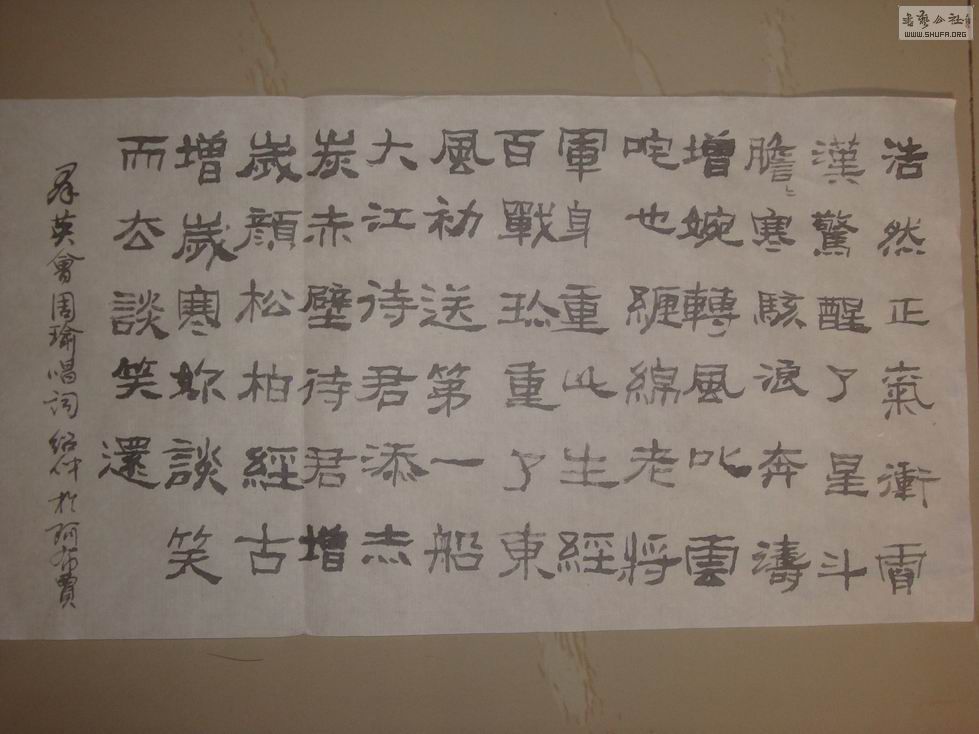 浩然正氣衝霄
漢驚醒了星斗
膽寒駭浪奔濤
增婉轉風叱雲
咤也纏綿老將
軍身重此生經
百戰珎重了東
風初送第一船
大江待君添赤
炭赤壁待君增
歲顏松柏經古
增歲寒談笑
而去談笑還
羣英會周瑜唱詞 紹仲於阿布賈
書藝公社
WWW.SHUFA.ORG